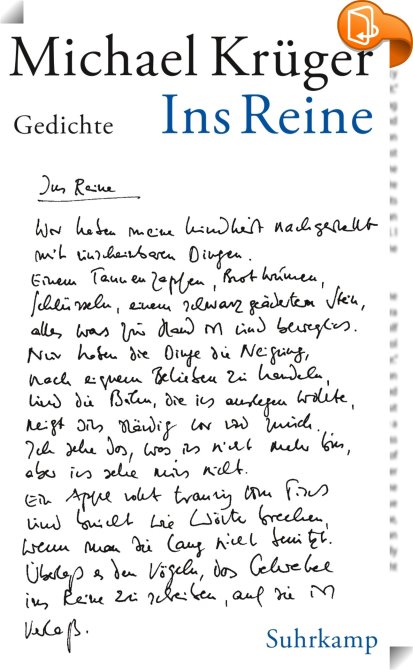 Michael Krüger
Gedichte Ins Reine
Ins Reine
Wir haben meine Kindheit nachgestellt
mit unscheinbaren Dingen.
Einem Tannenzapfen, Brotkrümen,
Schlüsseln, einem schwarz geäderten Stein,
alles was zur Hand ist und beweglich.
Nur haben die Dinge die Neigung,
nach eignem Belieben zu handeln,
und die Bühne, die ich auslegen wollte,
neigt sich ständig vor und zurück.
Ich sehe das, was ich nicht mehr bin,
aber ich sehe mich nicht.
Ein Apfel rollt traurig vom Tisch
und bricht wie Wörter brechen,
wenn man sie lang nicht benützt.
Überlaß es den Vögeln, das Gekrakel
ins Reine zu schreiben, auf sie ist
Verlaß.
Suhrkamp